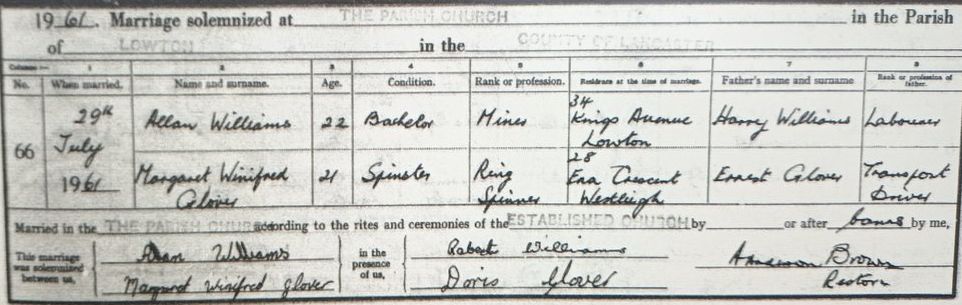 1961. Marriage solemnized at THE PARISH CHURCH in the Parish
of LOWTON in the COUNTY OF LANCASTER
Columns:— 1 2 3 4 5 6 7 8
No. When married. Name and surname. Age. Condition. Rank or profession. Residence at the time of marriage. Father's name and surname Rank or profession of father.
66 29th July 1961 Allan Williams 22 Bachelor Miner 34 Kings Avenue Lowton Harry Williams Labourer
Margaret Winifred Glover 21 Spinster Ring Spinner 28 Ena Crescent Westleigh Ernest Glover Transport Driver
Married in the THE PARISH CHURCH according to the rites and ceremonies of the ESTABLISHED CHURCH by or after banns by me,
This marriage was solemnized between us, Allan Williams in the presence of us, Robert Williams Brown
Margaret Winifred Glover Doris Glover Rector